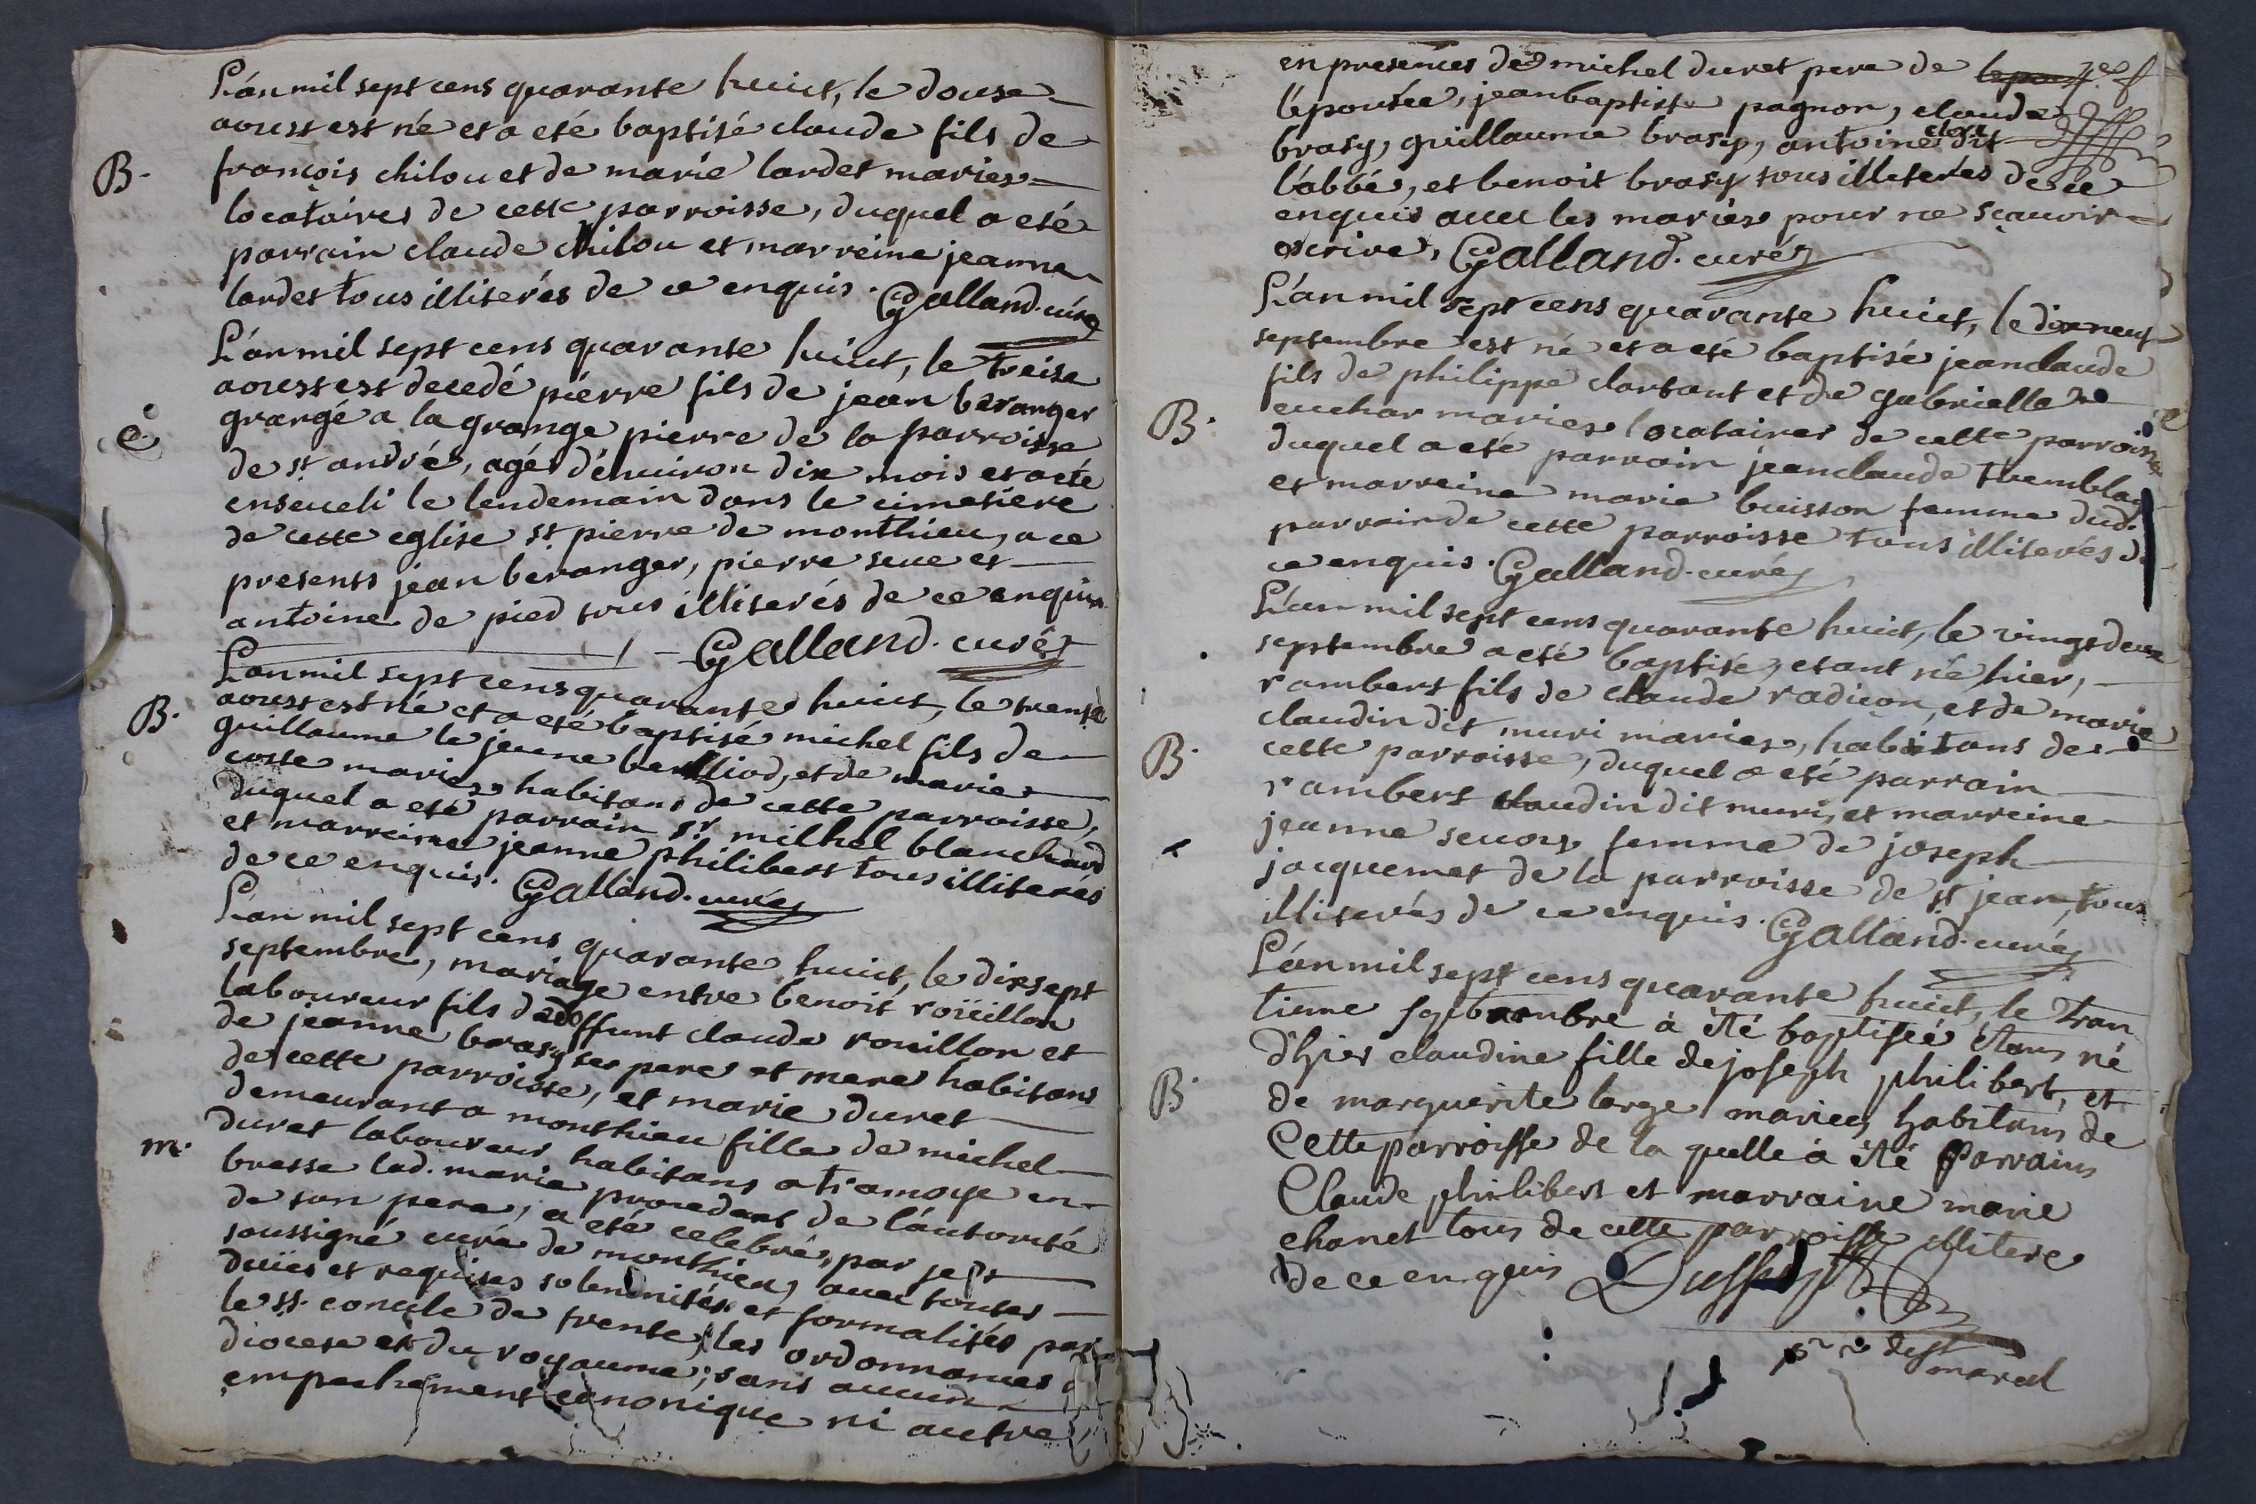 L'an mil sept cens quarante huict, le douse
aoust est né et a eté baptisé claude fils de
B.
françois chilou et de marie lardet mariés
locataires de cette parroisse, duquel a eté
parrain claude chilou et marreine jeanne
lardet tous illiterés de ce enquis. Galland. curé
L'an mil sept cens quarante huict, le treise
aoust est decedé pierre fils de jean beranger
grangé a la grange pierre de la parroisse
e.
de st andré, agé d'environ dix mois et a eté
enseveli le lendemain dans le cimetiere
de cette eglise st pierre de monthieu, a ce
presents jean beranger, pierre seve et
antoine de pied tous illiterés de ce enquis.
Galland. curé
L'an mil sept cens quarante huict, le trente
B.
aoust est né et a eté baptisé michel fils de
guillaume le jeune berlliod, et de marie
coste mariés habitans de cette parroisse,
duquel a eté parrain sr. milhel blanchard
et marreine jeanne philibert tous illiterés
de ce enquis. Galland. curé
L'an mil sept cens quarante huict, le dixsept
septembre, mariage entre benoit roüillon
laboureur fils de deffunt claude rouillon et
de jeanne brasy ses pere et mere habitans
de cette parroisse, et marie duret
demeurant a monthieu fille de michel
m.
duret laboureur habitans a tramoye en
bresse lad. marie procedant de l'autorité
de son pere, a eté celebré, par je st
soussigné curé de monthieu, avec toutes
duües et requises solemnités et formalités par
le st. concile de trente, les ordonnances
diocese et du royaume; sans aucun
empechement canonique ni autre
en presences de michel duret pere de
l'épousée, jeanbaptiste pagnon, claude
brasy, guillaume brasy, antoine dit
l'abbé, et benoit brasy tous illiterés de ce
enquis avec les mariés pour ne sçavoir
escrire. Galland. curé
L'an mil sept cens quarante huict, le dixneuf
septembre est né et a eté baptisé jeanclaude
fils de philippe clartant et de gabrielle
B.
cuchar mariés locataires de cette parroisse
duquel a eté parrain jeanclaude tremblay
et marreine marie buisson femme dud.
parrain de cette parroisse tous illiterés de
ce enquis. Galland. curé
L'an mil sept cens quarante huict, le vingt deux
septembre a eté baptisé, etant né hier,
rambert fils de claude radicon, et de marie
claudin dit muri mariés, habitans de
B.
cette parroisse, duquel a eté parrain
rambert claudin dit muri, et marreine
jeanne sevoz femme de joseph
jacquemet de la parroisse de st jean, tous
illiterés de ce enquis. Galland. curé
L'an mil sept cens quarante huict, le tran
tieme septembre à été baptisée étans né
d'hier claudine fille de joseph philibert, et
B.
de marguerite large mariez habitans de
Cette parroisse de la quelle à été Parrain
Claude philibert et marraine marie
chanet tous de cette parroisse illitere
de ce enquis
marcel